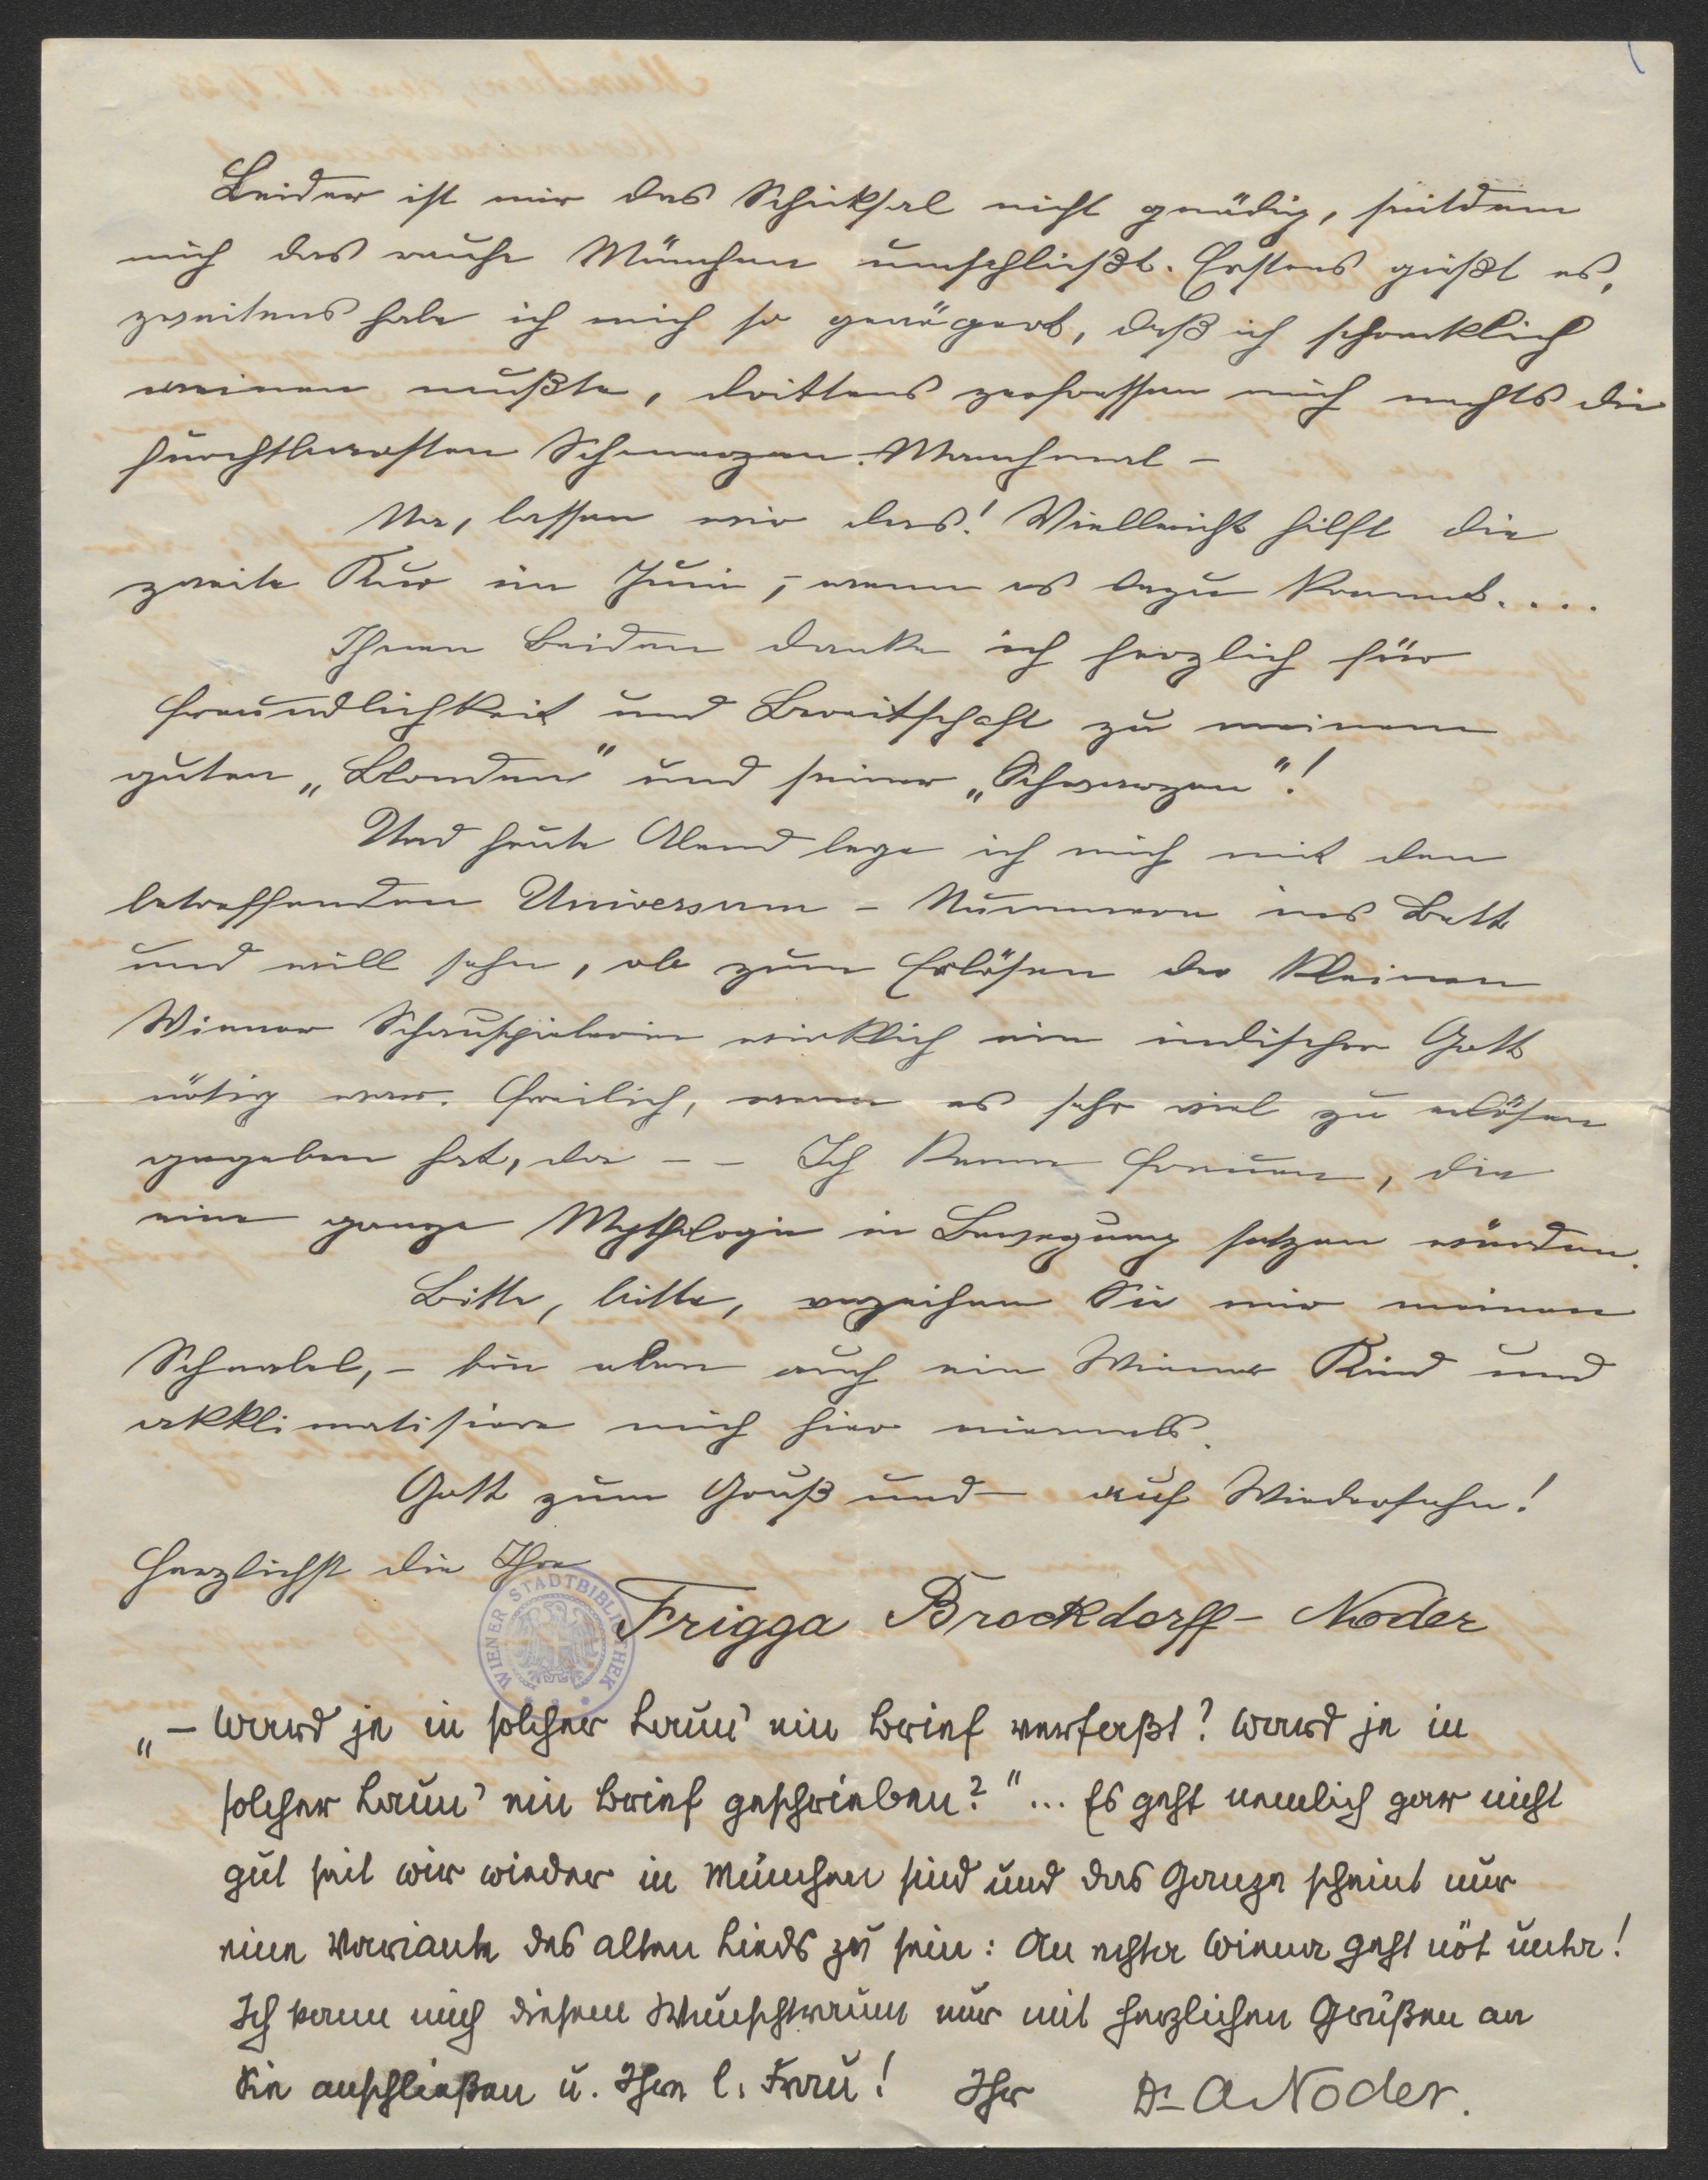 Leider ist mir das Schicksal nicht gnädig, seitdem
mich das rauhe München umschließt. Erstens gießt es,
zweitens habe ich mich so geärgert, daß ich schrecklich
weinen mußte, drittens zerfressen mich nachts die
furchtbarsten Schmerzen. Manchmal –
Na, lassen wir das! Vielleicht hilft die
zweite Kur im Juni, – wenn es dazu kommt....
Ihnen Beiden danke ich herzlich für
Freundlichkeit und Bereitschaft zu meinem
guten „Blonden“ und seiner „Schwarzen“!
Und heute Abend lege ich mich mit den
betreffenden Universum – Nummern ins Bett
und will sehn, ob zum Erlösen der kleinen
Wiener Schauspielerin wirklich ein indischer Gott
nötig war. Freilich, wenn es sehr viel zu erlösen
gegeben hat, da – – Ich kenne Frauen, die
eine ganze Mythologie in Bewegung setzen würden.
Bitte, bitte, verzeihen Sie mir meinen
Schnabel, – bin eben auch ein Wiener Kind und
akklimatisiere mich hier niemals.
Gott zum Gruß und – auf Wiedersehn!
Herzlichst die Ihre
WIENER STADTBIBLIOTHEK
Frigga Brockdorff – Noder
„– Ward je in solcher Laun' ein Brief verfaßt? Ward je in
solcher Laun' ein Brief geschrieben?“... Es geht nemlich gar nicht
gut seit wir wieder in München sind und das Ganze scheint nur
eine Variante des alten Lieds zu sein: An echter Wiener geht nöt unter!
Ich kann mich diesem Wunschtraum nur mit herzlichen Grüßen an
Sie anschließen u. Ihre l. Frau! Ihr Dr A Noder.